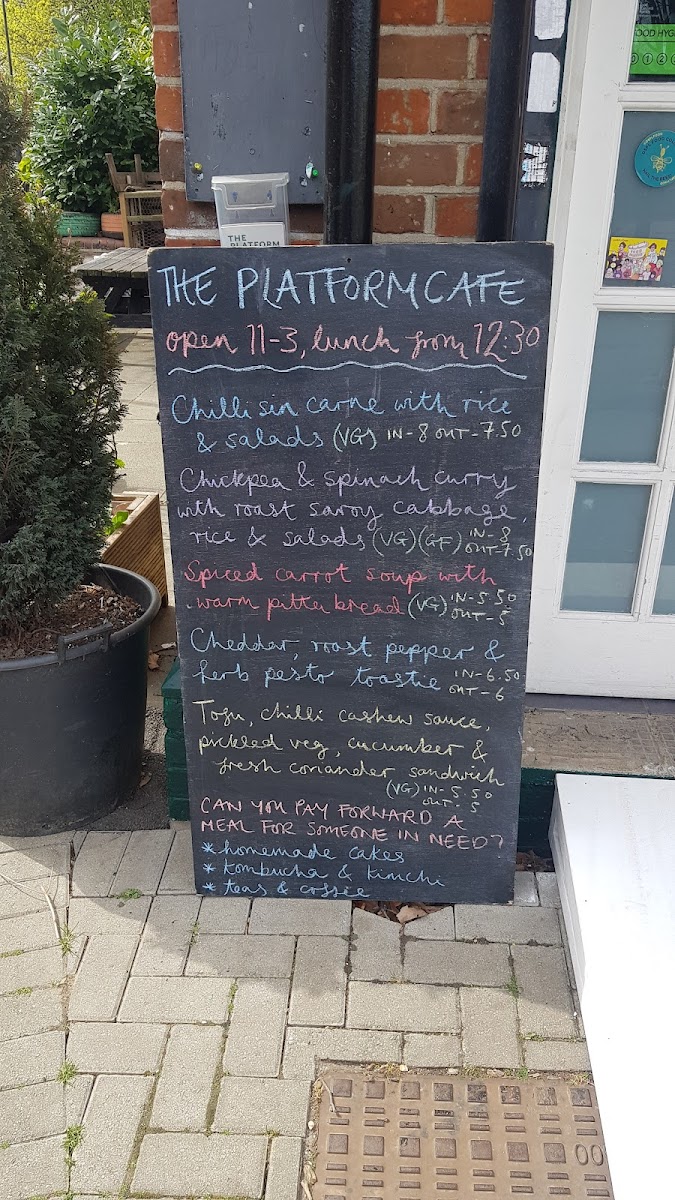 THE PLATFORM
THE PLATFORM CAFE
open 11-3, lunch from 12:30
Chilli sin carne with rice
& salads (VG) IN - 8 OUT - 7.50
Chickpea & spinach curry
with roast savoy cabbage,
rice & salads (VG) (GF) IN - 8
OUT - 7.50
Spiced carrot soup with
warm pitta bread (VG) IN - 5.50
OUT - 5
Cheddar, roast pepper &
herb pesto toastie IN - 6.50
OUT - 6
Tofu, chilli cashew sauce,
pickled veg, cucumber &
fresh coriander sandwich
(VG) IN - 5.50
OUT - 5
CAN YOU PAY FORWARD A
MEAL FOR SOMEONE IN NEED?
* homemade cakes
* kombucha & kimchi
* teas & coffee